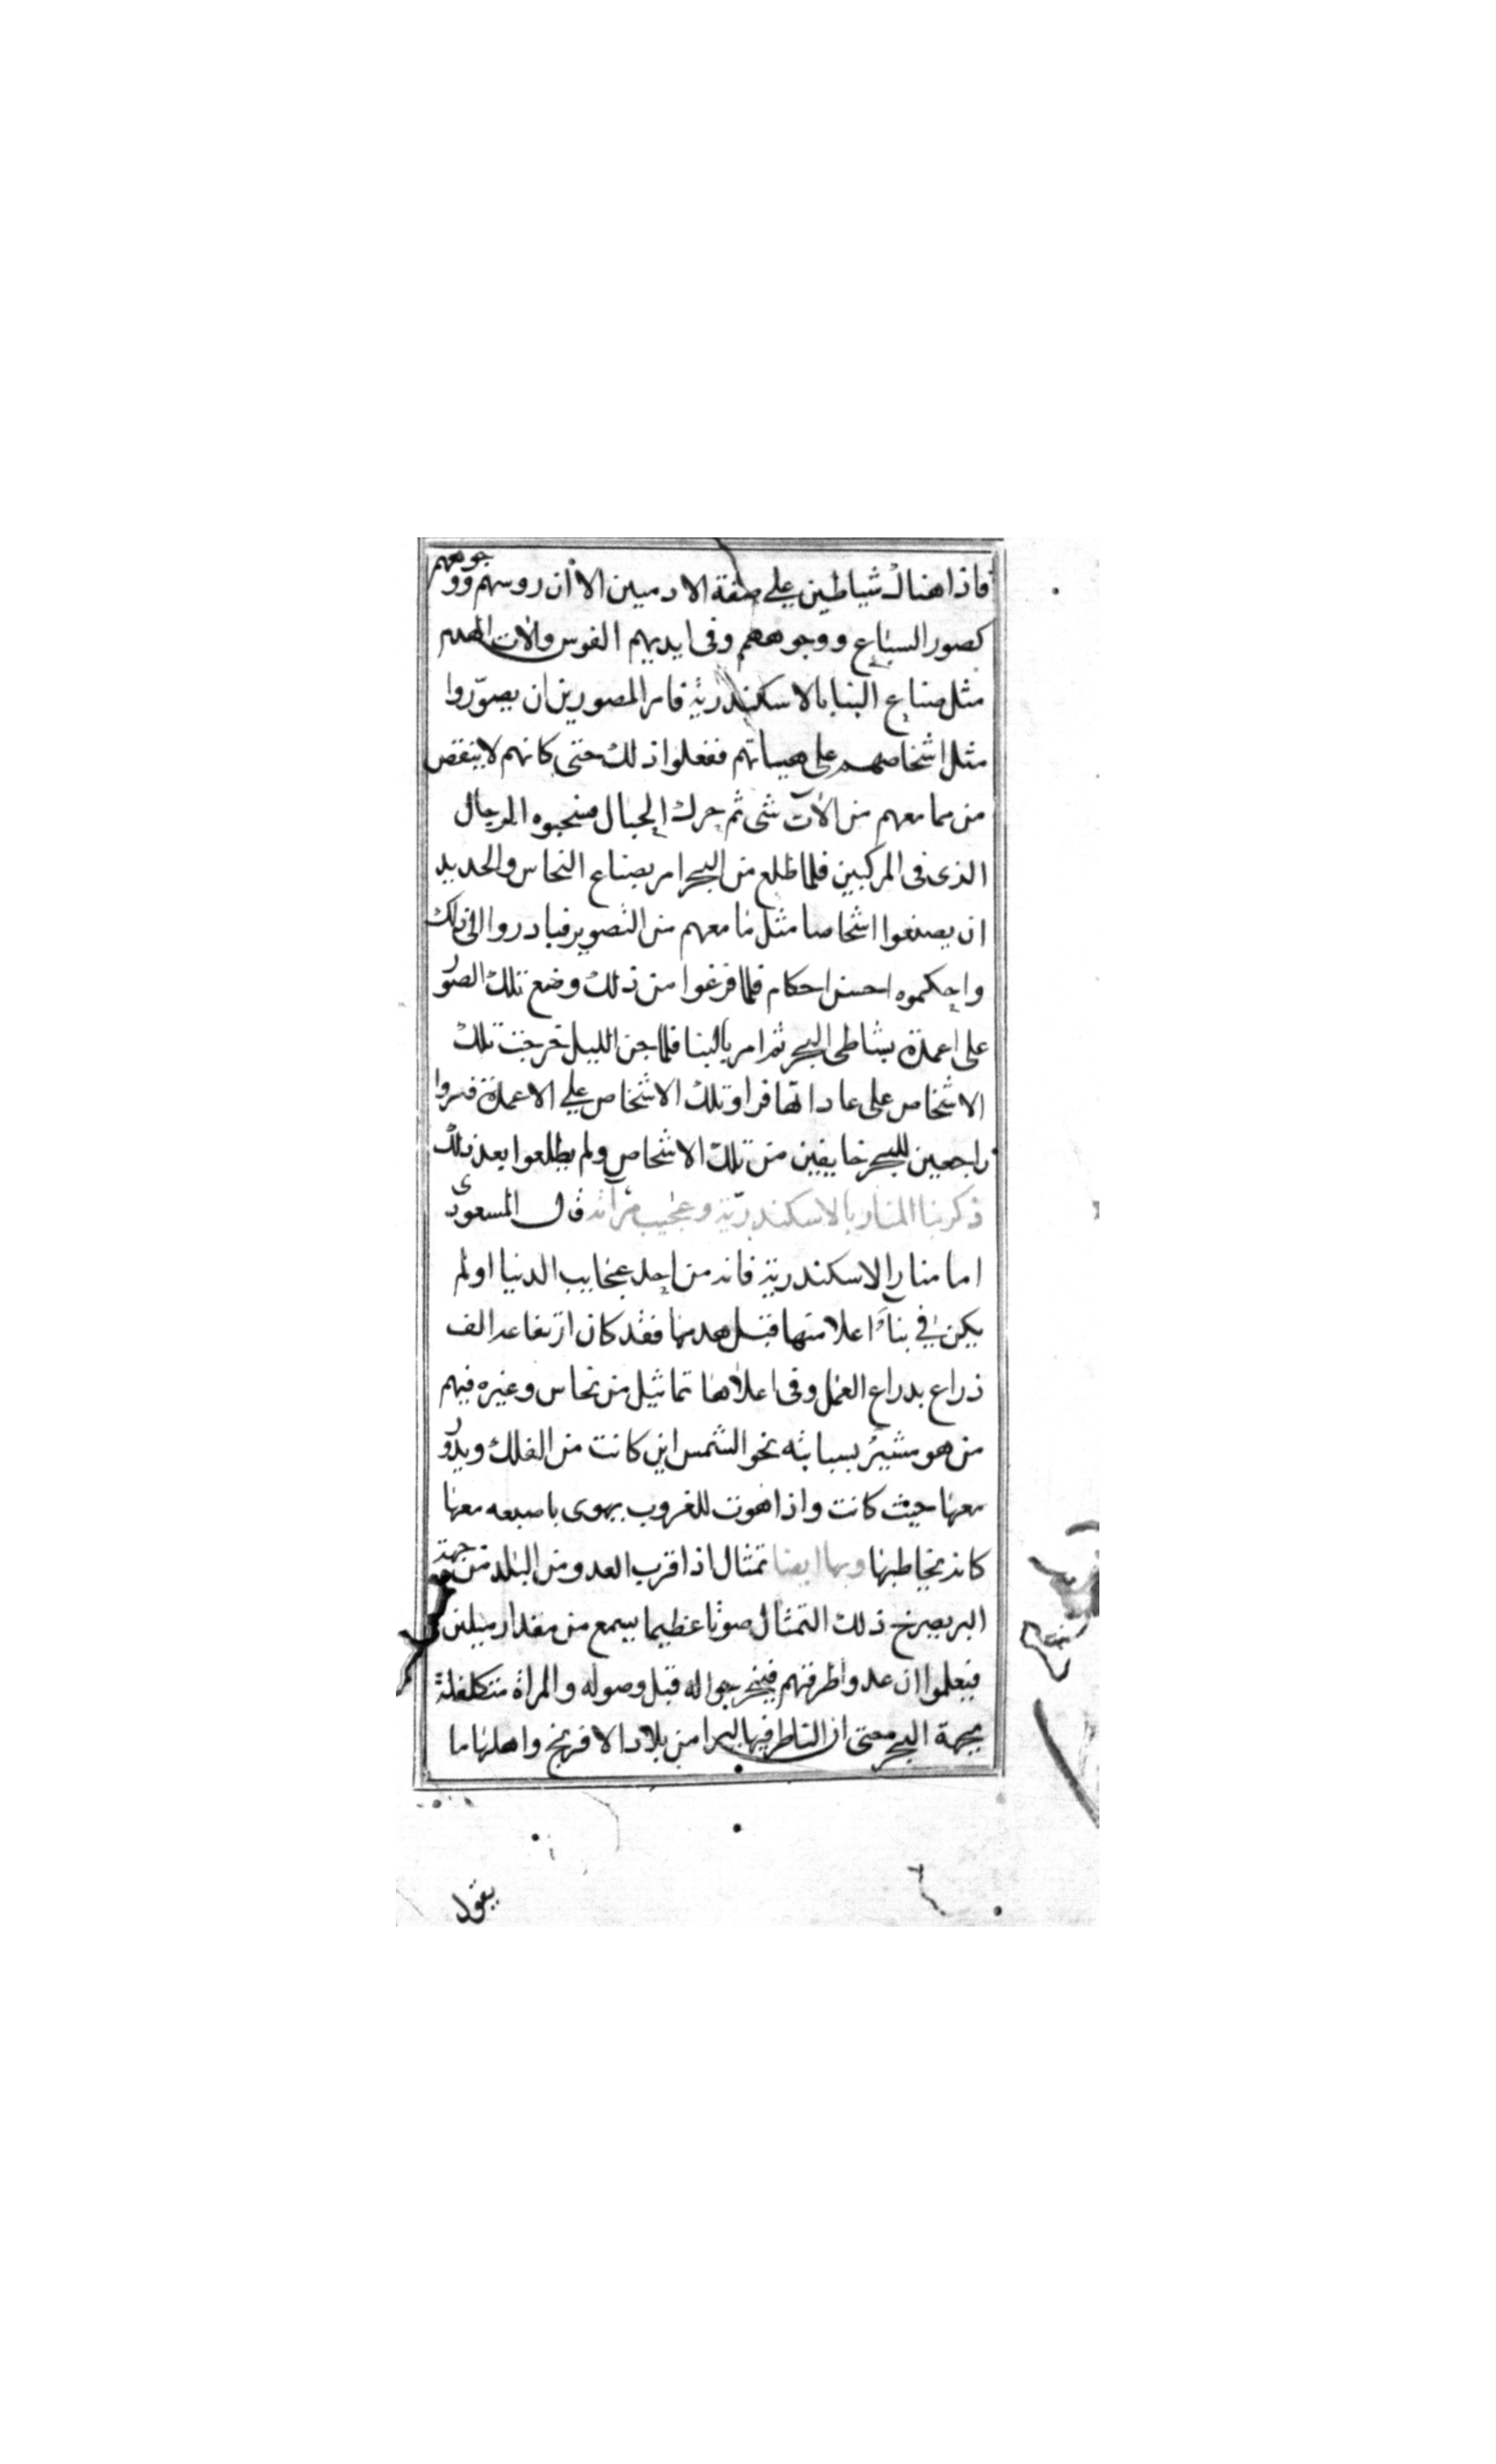 فاذا هناك شياطين علي صفة الادميين الا أن روسهم ووجوههم
كصور السباع ووجوههم وفى ايديهم الفوس والات الهدم
مثل صناع البنا بالاسكندرية فامر المصورين ان يصوّروا
مثل اشخاصهم على هيياتهم ففعلوا ذلك حتى كانهم لا ينقص
من مما معهم من الآلات شى ثم حرك الحبال فسحبوه الرجال
الذى فى المركبين فلما طلع من البحر امر بصناع النحاس والحديد
ان يصنعوا اشخاصا مثل ما معهم من التصوير فبادروا الى ذلك
واحكموه احسن احكام فلما فرغوا من ذلك وضع تلك الصور
على اعمدة بشاطى البحر ثم امر بالبنا فلما جن الليل خرجت تلك
الاشخاص على عاداتها فراوا تلك الاشخاص علي الاعمدة فمروا
راجعين للبحر خايفين من تلك الاشخاص ولم يطلعوا بعد ذلك
ذكر بنا المنار بالاسكندريّة وعجيب مرآته قال المسعودى
اما منار الاسكندرية فانه من احد عجايب الدنيا اولم
يكن في بناءُ اعلا منها قبل هدمها فقد كان ارتفاعه الف
ذراع بدراع العمل وفى اعلاها تماثيل من نحاس وغيره فيهم
من هو مشيرُ بسبابته نحو الشمس اين كانت من الفلك ويدور
معها حيث كانت واذا هوت للغروب يهوى باصبعه معها
كانه يخاطبها وبها ايضا تمثال اذا قرب العدو من البلد من جهة
البر يصرخ ذلك التمثال صوتا عظيما يسمع من مقدار ميلين
فيعلموا ان عدو اطرقتهم فيخرجوا له قبل وصوله والمراة متكلفلة
بجهة البحر حتى ان الناظر فيها ليرا من بلاد الافرنج واهلها ما
يقول